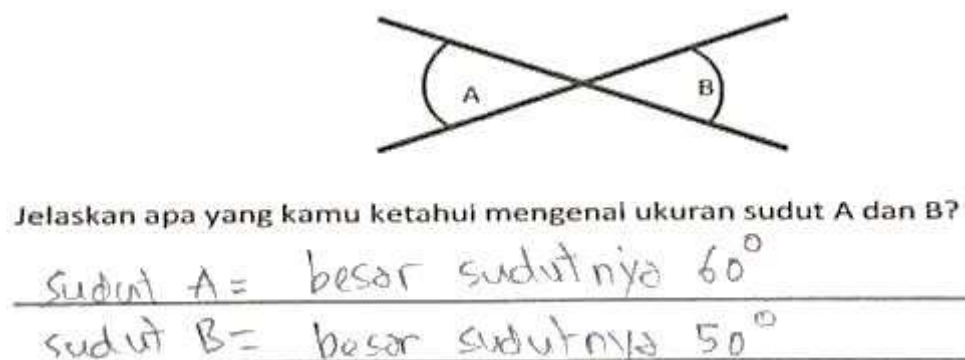 A
B
Jelaskan apa yang kamu ketahui mengenai ukuran sudut A dan B?
sudut A = besar sudutnya 60°
sudut B = besar sudutnya 50°